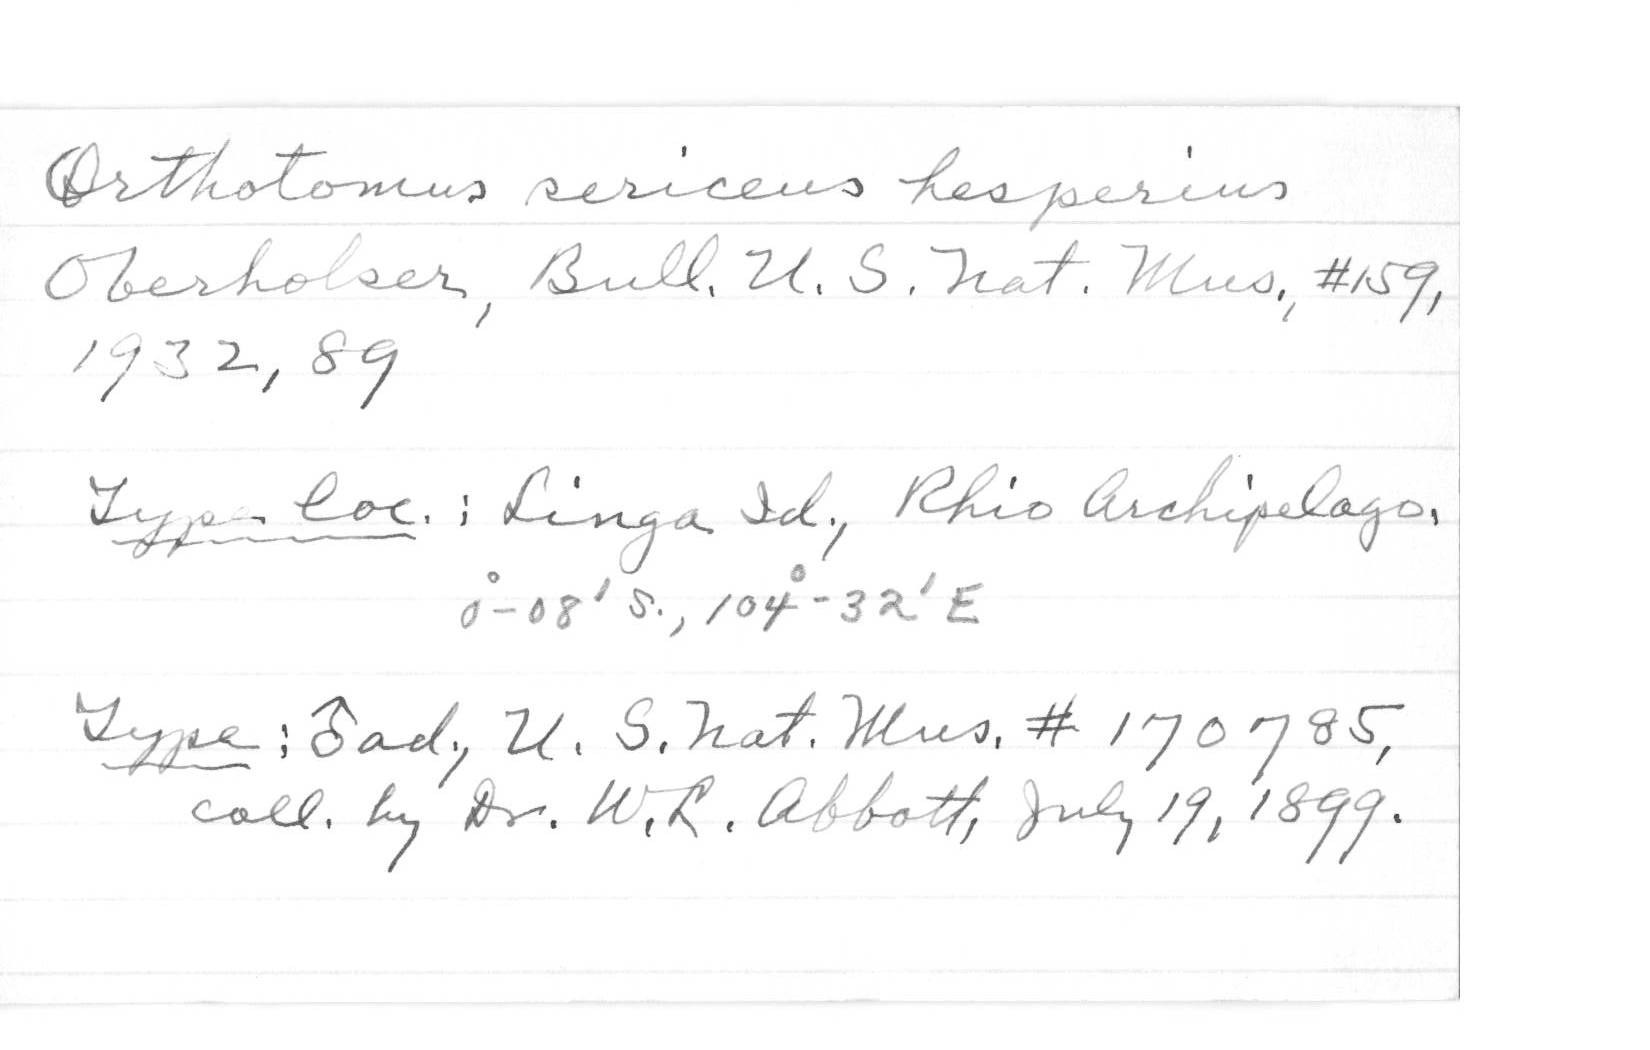 Orthotomus sericeus hesperius
Oberholser, Bull. U. S. Nat. Mus., #159,
1932, 89
Type loc.: Linga Id., Rhio Archipelago.
0°-08' S., 104°-32' E
Type: ♂ ad., U. S. Nat. Mus. # 170785,
coll. by Dr. W. L. Abbott, July 19, 1899.